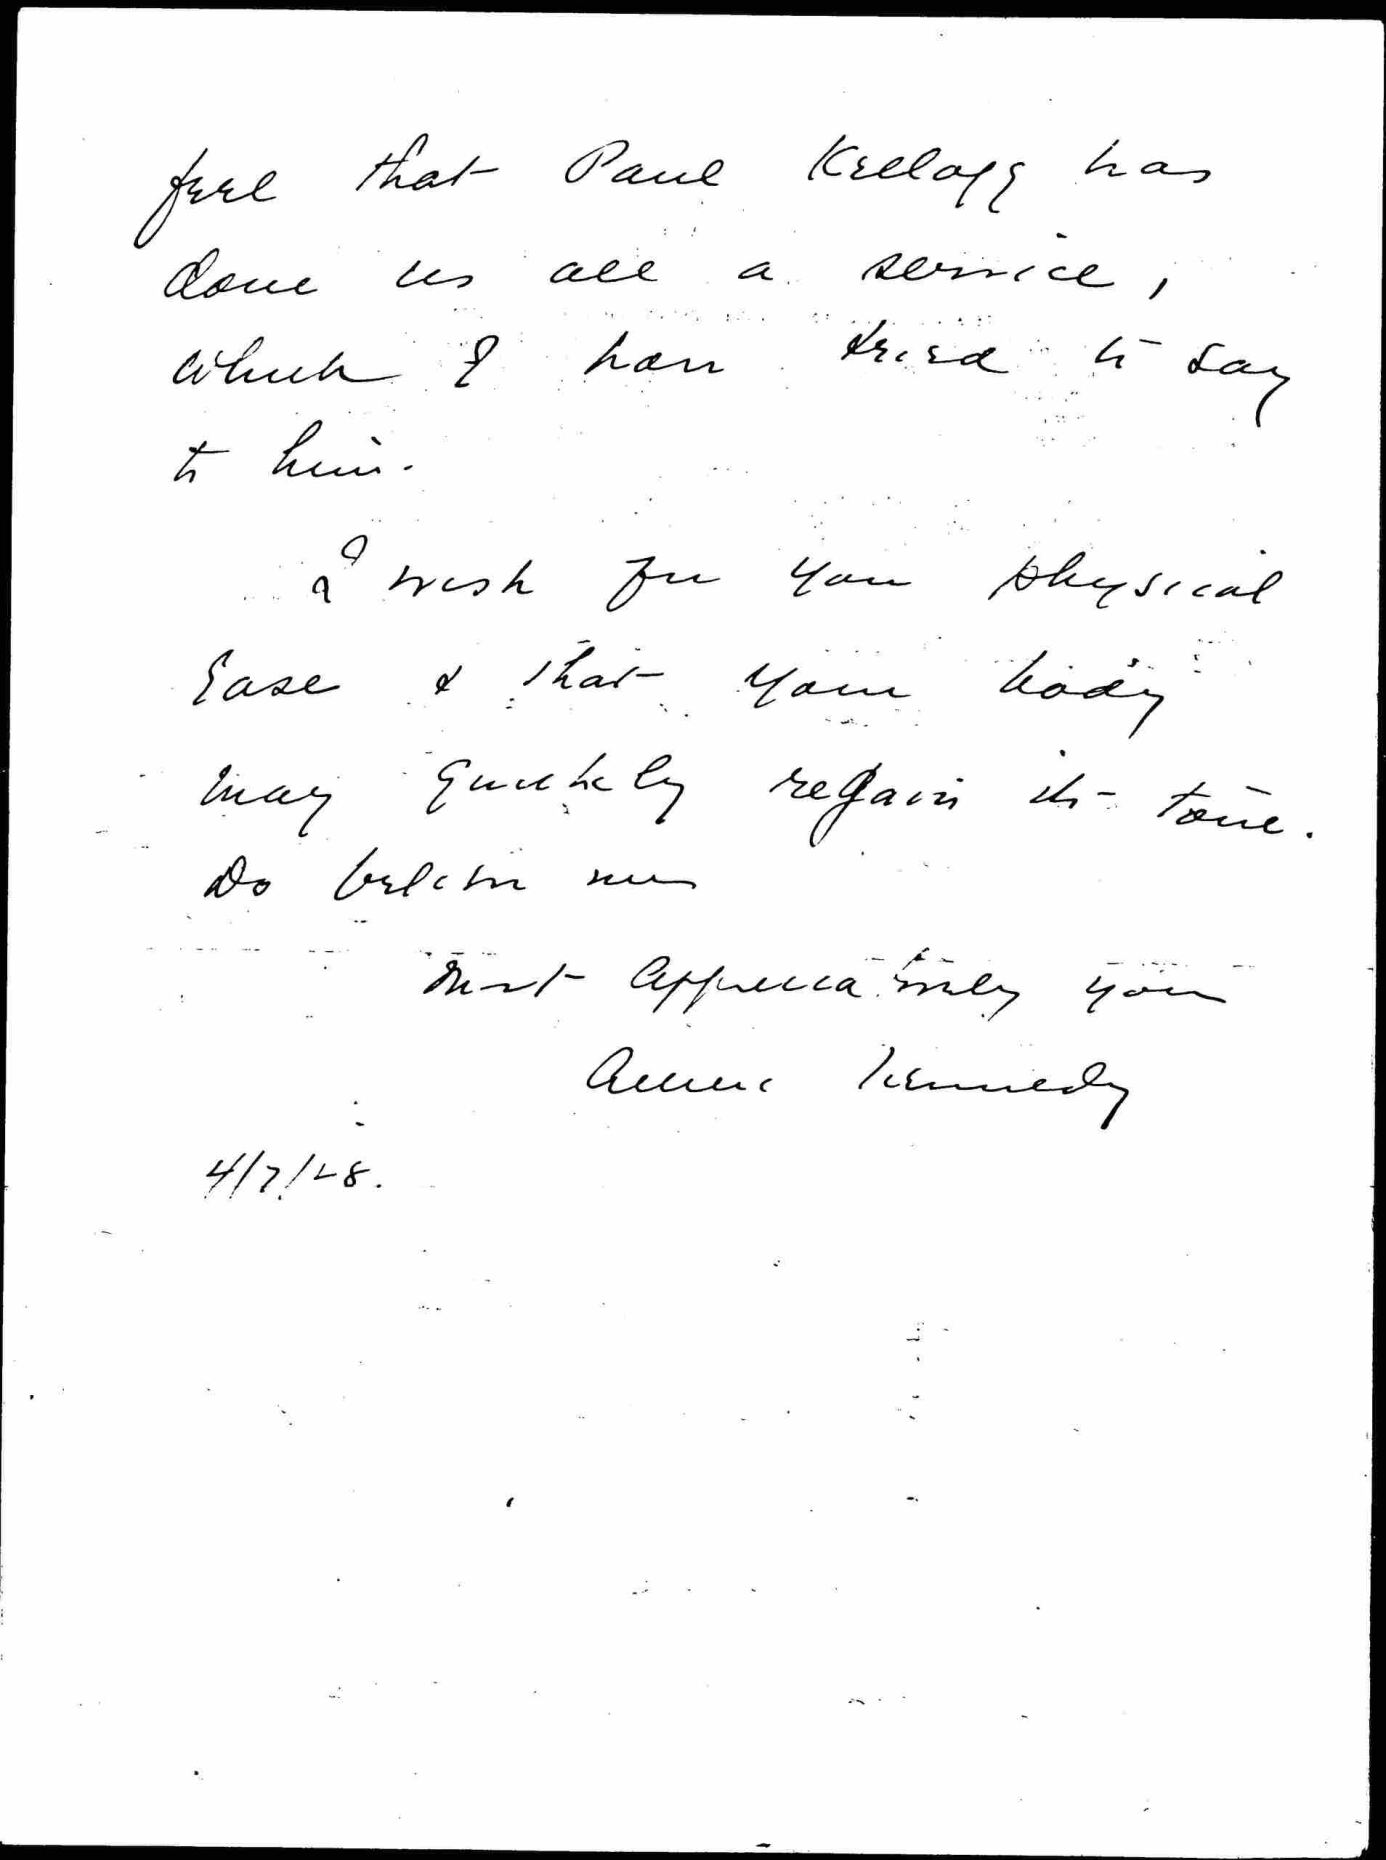 feel that Paul Kellogg has
done us all a service,
which I have tried to say
to him.
I wish for you physical
Ease & that your body
may quickly regain its tone.
Do believe me
Most appreciatively yours
Anne Kennedy
4/7/28.